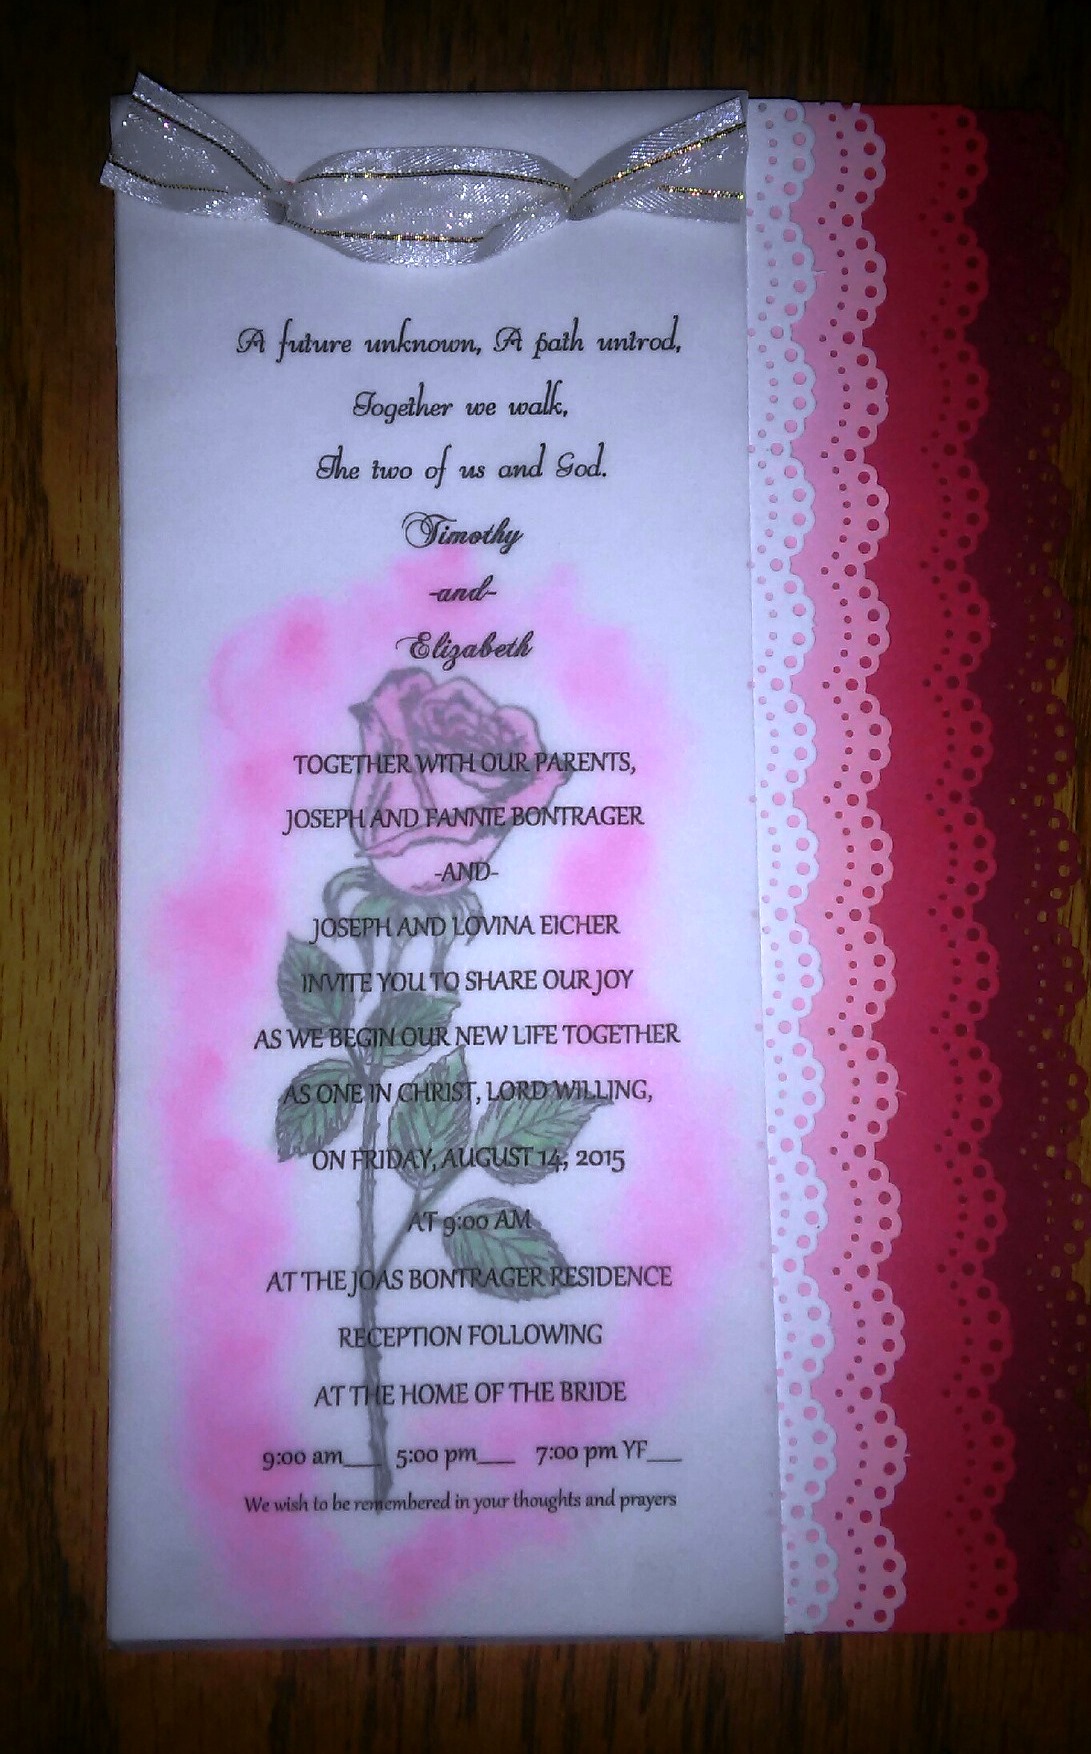 A future unknown, A path untrod,
Together we walk,
The two of us and God.
Timothy
-and-
Elizabeth
TOGETHER WITH OUR PARENTS,
JOSEPH AND FANNIE BONTRAGER
-AND-
JOSEPH AND LOVINA EICHER
INVITE YOU TO SHARE OUR JOY
AS WE BEGIN OUR NEW LIFE TOGETHER
AS ONE IN CHRIST, LORD WILLING,
ON FRIDAY, AUGUST 14, 2015
AT 9:00 AM
AT THE JOAS BONTRAGER RESIDENCE
RECEPTION FOLLOWING
AT THE HOME OF THE BRIDE
9:00 am___ 5:00 pm___ 7:00 pm YF___
We wish to be remembered in your thoughts and prayers